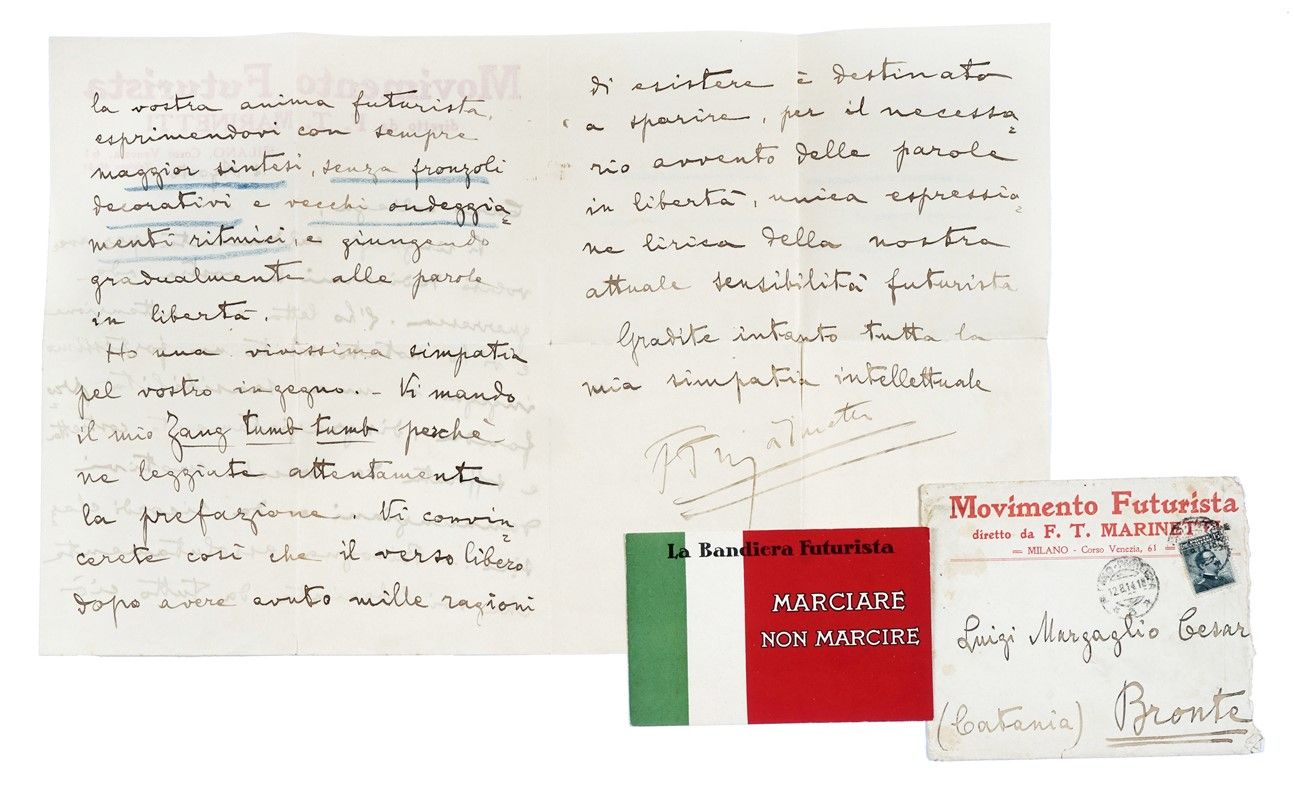 la vostra anima futurista,
esprimendovi con sempre
maggior sintesi, senza fronzoli
decorativi e vecchi ondeggia=
menti ritmici, e giungendo
gradualmente alle parole
in libertà.
Ho una vivissima simpatia
pel vostro ingegno. – Vi mando
il mio Zang tumb tumb perchè
ne leggiate attentamente
la prefazione. Vi convin=
cerete così che il verso libero
dopo avere avuto mille ragioni
di esistere è destinato
a sparire, per il necessa=
rio avvento delle parole
in libertà, unica espressio=
ne lirica della nostra
attuale sensibilità futurista
Gradite intanto tutta la
mia simpatia intellettuale
F T Marinetti
La Bandiera Futurista
MARCIARE
NON MARCIRE
Movimento Futurista
diretto da F. T. MARINETTI
MILANO - Corso Venezia, 61
12.8.14.18
Luigi Margaglio Cesar
(Catania) Bronte